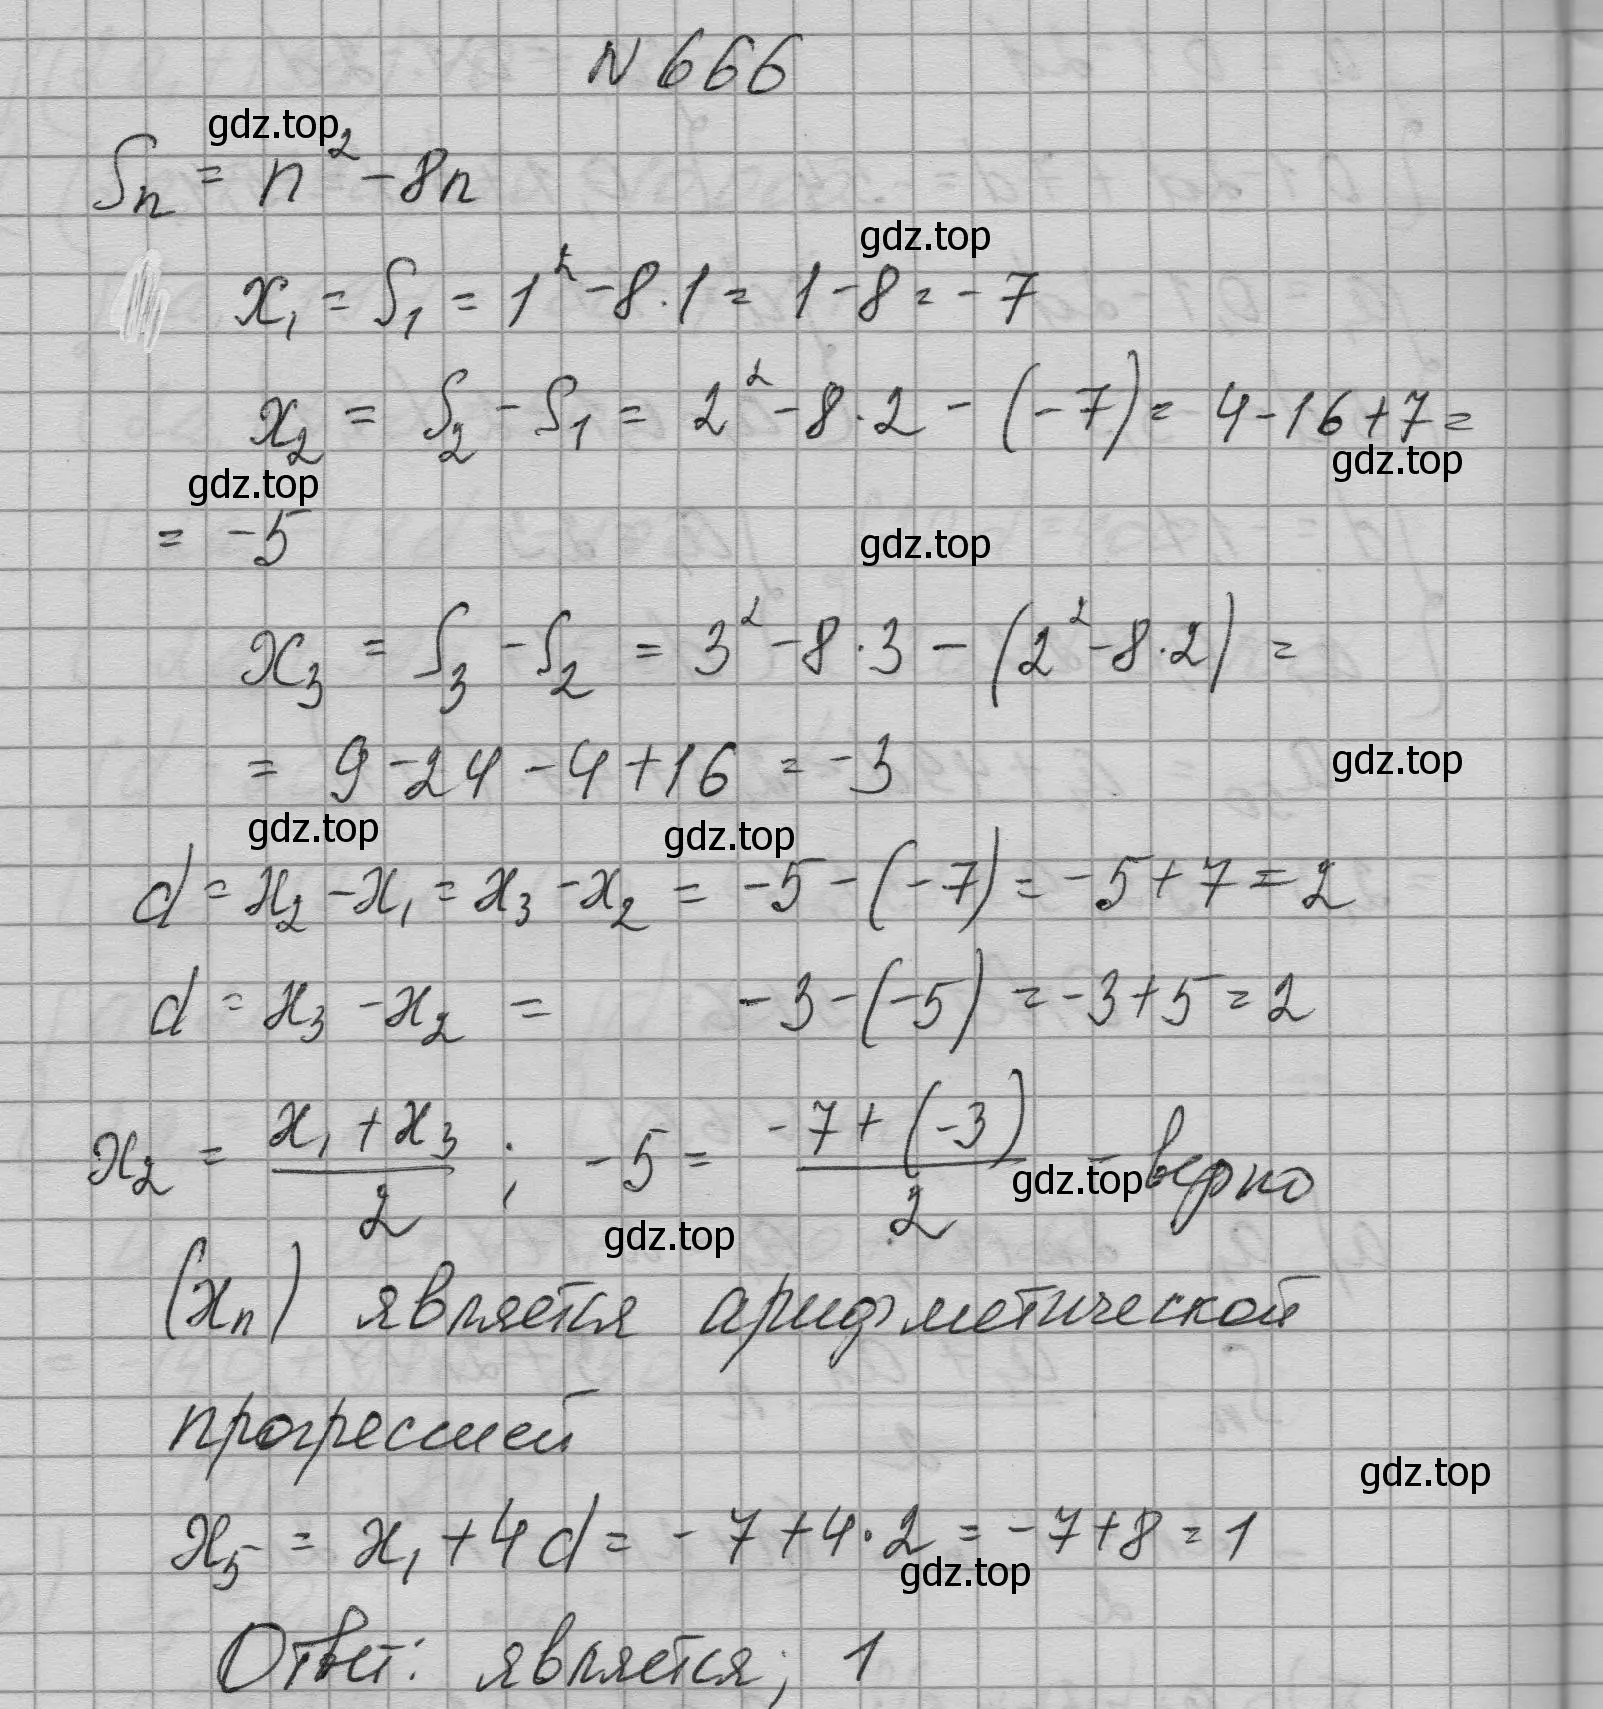 N 666
gdz.top
Sₙ = n² - 8n
gdz.top
x₁ = S₁ = 1² - 8·1 = 1 - 8 = -7
x₂ = S₂ - S₁ = 2² - 8·2 - (-7) = 4 - 16 + 7 =
gdz.top
gdz.top
= -5
gdz.top
x₃ = S₃ - S₂ = 3² - 8·3 - (2² - 8·2) =
= 9 - 24 - 4 + 16 = -3
gdz.top
gdz.top
gdz.top
d = x₂ - x₁ = x₃ - x₂ = -5 - (-7) = -5 + 7 = 2
d = x₃ - x₂ = -3 - (-5) = -3 + 5 = 2
x₂ = (x₁ + x₃)/2 ; -5 = (-7 + (-3))/2 - верно
gdz.top
gdz.top
(xₙ) является арифметической
прогрессией
gdz.top
x₅ = x₁ + 4d = -7 + 4·2 = -7 + 8 = 1
gdz.top
Ответ: является; 1